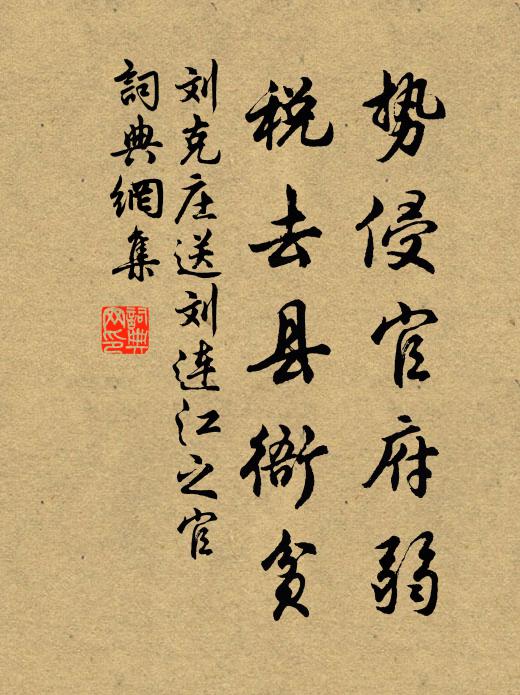 势侵官府弱
税去县衙贫
刘克庄送刘连江之官
词典網集
詞典網印